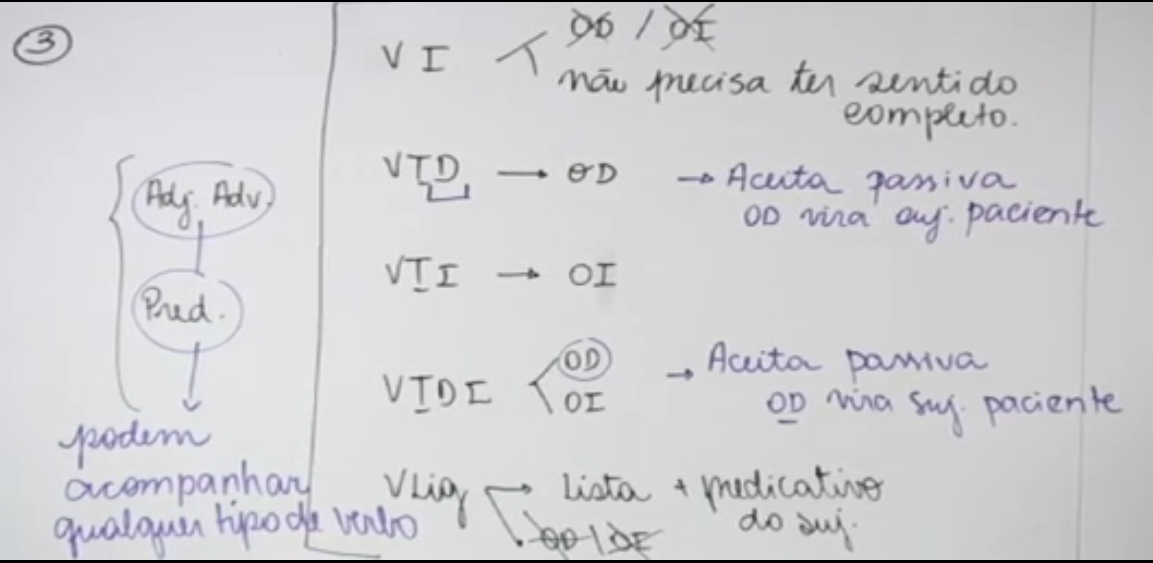 3
Adj. Adv.
Pred.
podem
acompanhar
qualquer tipo de verbo
VI OD / OI
não precisa ter sentido
completo.
VTD → OD → Aceita passiva
OD vira suj. paciente
VTI → OI
VTDI OD → Aceita passiva
OI OD vira suj. paciente
VLig → Lista + predicativo
do suj.
OD / OI